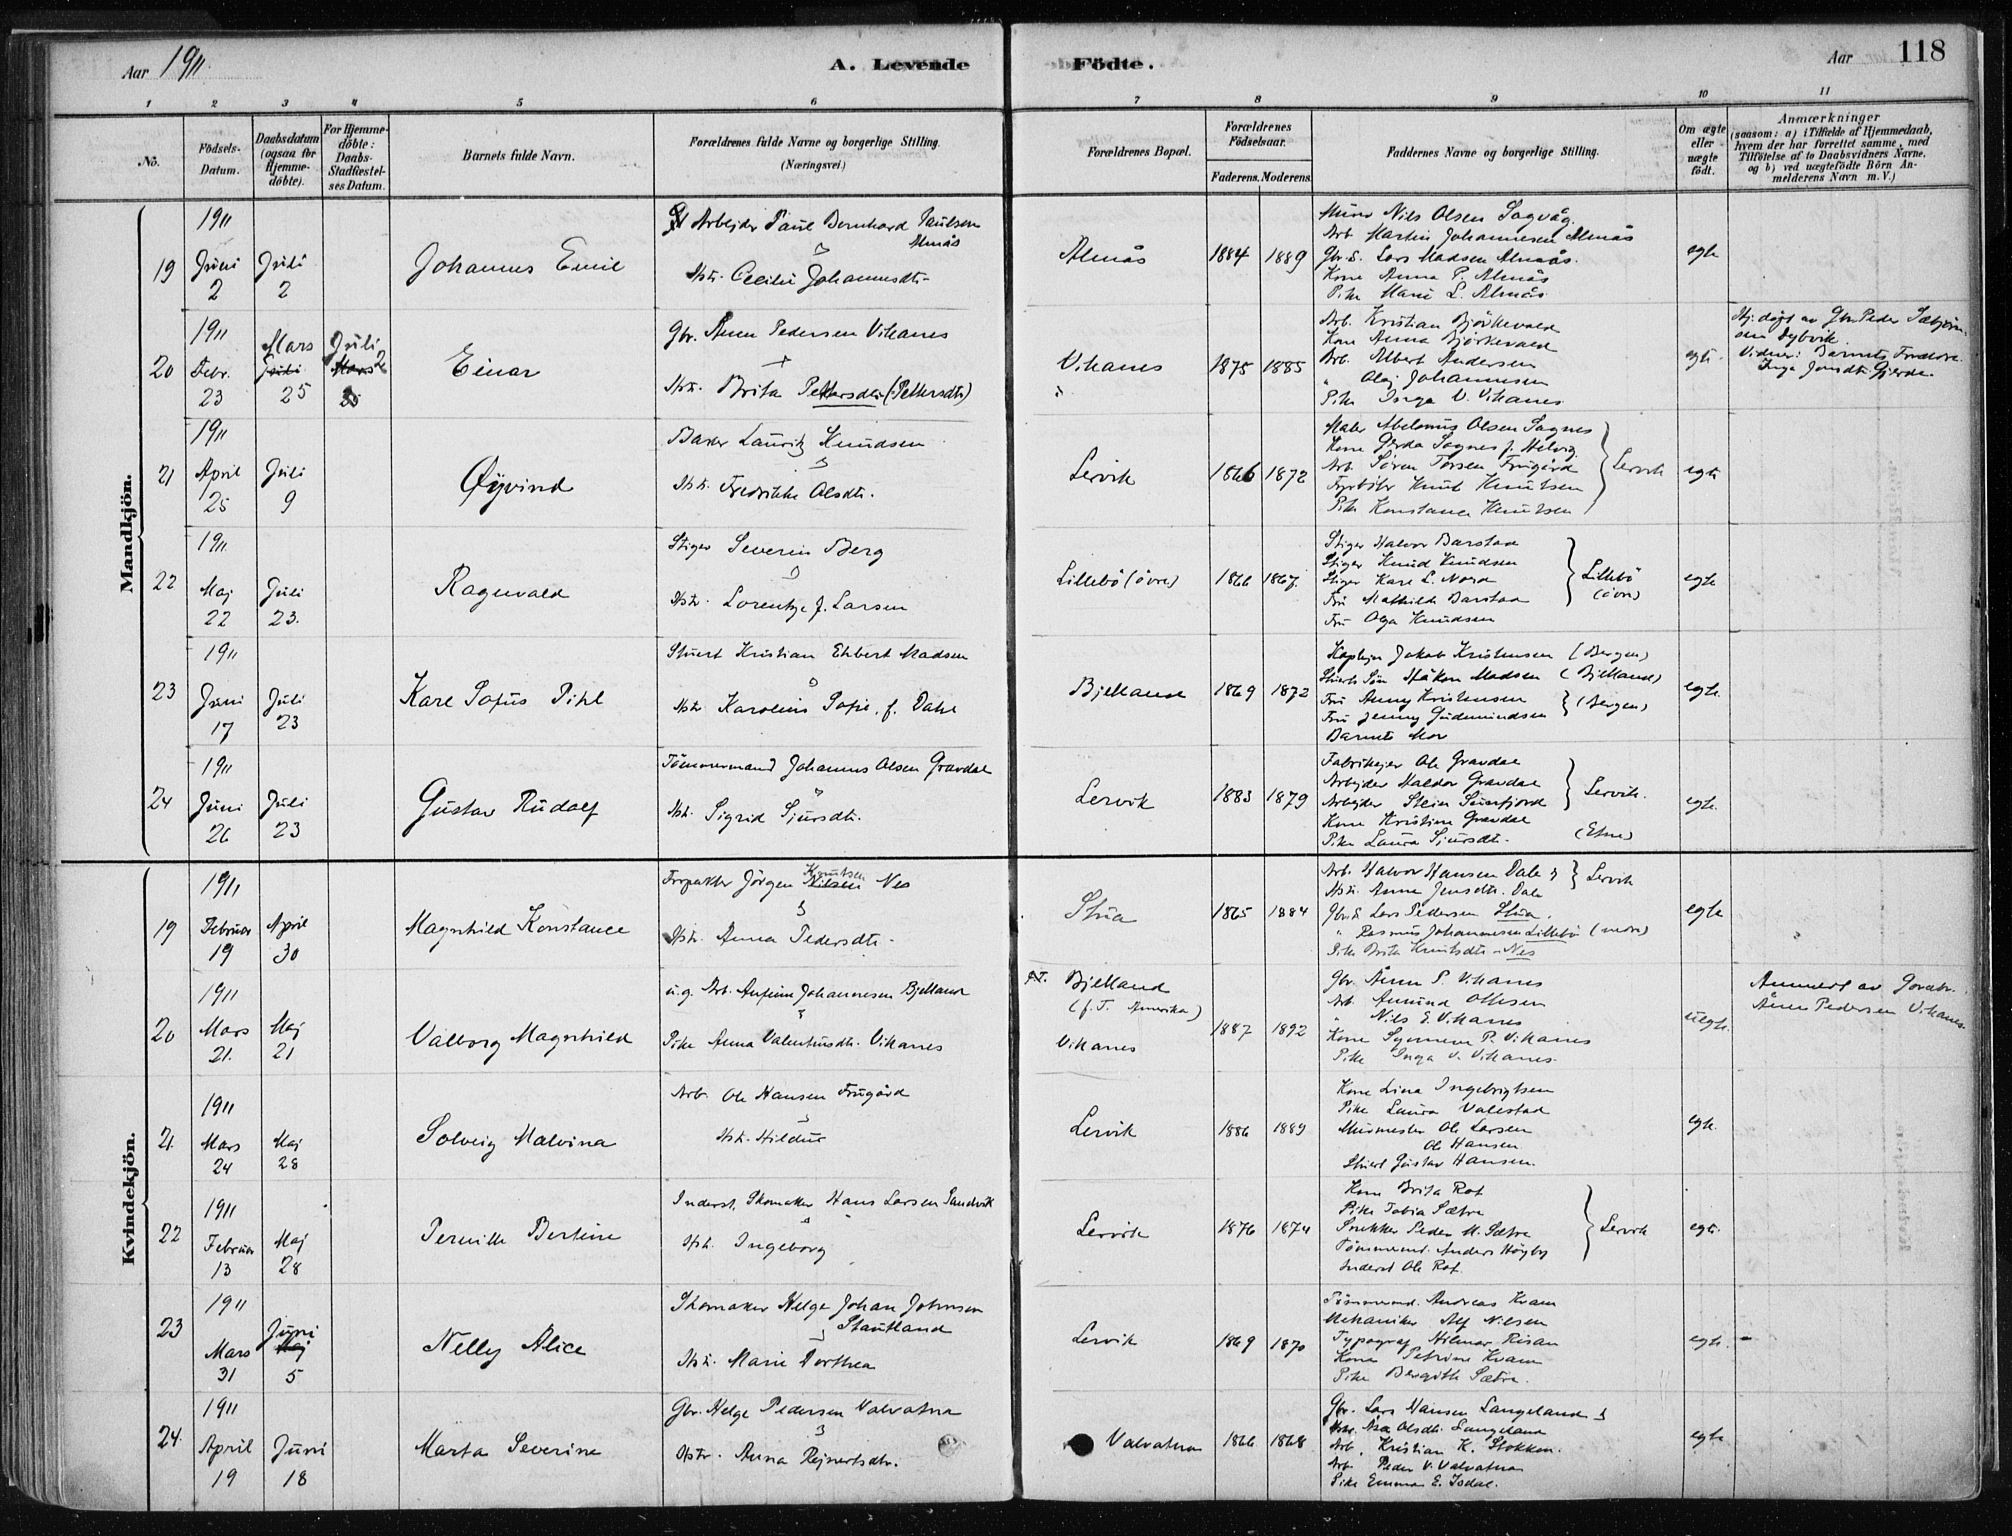 Aar 1911.
A. Levende
Födte.
Aar
118
1 2 3 4 5 6 7 8 9 10 11
No.
Födsels-
Datum.
Daabsdatum
(ogsaa for
Hjemme-
döbte).
For Hjemme-
döbte:
Daabs-
Stadfæstel-
ses Datum.
Barnets fulde Navn.
Forældrenes fulde Navne og borgerlige Stilling.
(Næringsvei.)
Forældrenes Bopæl.
Forældrenes
Födselsaar.
Faderens. Moderens.
Faddernes Navne og borgerlige Stilling.
Om ægte
eller
uægte
födt.
Anmærkninger
(saasom: a) i Tilfælde af Hjemmedaab,
hvem der har forrettet samme, med
Tilföielse af to Daabsvidners Navne,
og b) ved uægtefödte Börn An-
melderens Navn m. V.)
Mandkjön.
19
1911
Juni
2
Juli
2
Johannes Emil
Arbejder Paul Bernhard Paulsen
Almås
Hstr. Cecilie Johannesdtr.
Almås
1884
1889
Murer Nils Olsen Sagvåg
Arb. Martin Johannesen Almås
Gbr.s. Lars Madsen Almås.
Kone Anna P. Almås
Pike Marie L. Almås
egte
20
1911
Febr.
23
Mars
Juli
25
Juli
Mars 2
25
Einar
Gbr. Ånen Pedersen Vikanes
Hstr. Brita Pettersdtr (Pettersdtr)
Vikanes
1875
1885
Arb. Kristian Björkevald
Kone Anna Björkevald
Arb. Albert Andersen
" Olaj Johannesen
Pike Inga V. Vikanes
egte.
Hj. døpt av Gbr. Peder Sæbjörn-
sen Dybvik
Vidner: Barnets Forældre.
Inga Jonsdtr. Gjerde.
21
1911
April
25
Juli
9
Øyvind
Baker Lauritz Knudsen
Hstr. Fredrikke Olsdtr.
Lervik
1866
1872
Maler Abelonius Olsen Sagnes
Kone Gerda Sagnes f. Helvig
Arb. Søren Torsen Frugård
Fyrböter Knut Knutsen
Pike Konstance Knutsen
Lervik
egte
22
1911
Maj
22
Juli
23.
Ragnvald
Stiger Severin Berg
Hstr. Lorentze f. Larsen
Lillebö (övre)
1866
1867.
Stiger Halvor Barstad
Stiger Knud Knudsen
Stiger Karl L. Nord
Fru Mathilde Barstad
Fru Olga Knudsen
Lillebö
(övre)
egte
23
1911
Juni
17
Juli
23
Karl Sofus Pihl
Stuert Kristian Ehbert Madsen
Hstr. Karoline Sofie, f. Dahl
Bjelland
1869
1872
Jakob Kristensen (Bergen)
Stuerts Søn Håkon Madsen (Bjelland)
Fru Anny Kristensen
Fru Jenny Gudmundsen
(Bergen)
Barnets Mor
egte.
24
1911
Juni
26
Juli
23
Gustav Rudolf
Tömmermand Johannes Olsen Gravdal
Hstr. Sigrid Sjursdtr.
Lervik
1883
1879
Fabrikejer Ole Gravdal
Arbejder Haldor Gravdal
Arbejder Stein Sunfjord
Kone Kristine Gravdal
Pike Laura Sjursdtr.
Lervik.
(Etne)
egte.
Kvindekjön.
19
1911
Februar
19
April
30
Magnhild Konstance
Knutsen
Forpakter Jörgen Nilsen Nes
Hstr. Anna Pedersdtr.
Stua
1865
1884
Arb. Halvor Hansen Dale
Hstr. Anna Jensdtr. Dale
Lervik
Gbr.s Lars Pedersen Stua.
" Rasmus Johannesen Lillebö (nedre)
Pike Brita Knutsdtr. Nes
egte
20
1911
Mars
21.
Maj
21
Valborg Magnhild
u.g. Arb. Anfinn Johannesen Bjelland
Pike Anna Valentinsdtr. Vikanes
Bjelland
(f. T. Amerika)
Vikanes
1887
1892
Gbr. Ånen P. Vikanes
Arb. Amund Ottesen
" Nils E. Vikanes
Kone Synneva P. Vikanes
Pike Inga V. Vikanes.
uegte.
Anmeldt av Gårdbr.
Ånen Pedersen Vikanes.
21
1911
Mars
24
Maj
28
Solveig Malvina
Arb. Ole Hansen Frugård
Hstr. Hildur
Lervik
1886
1889
Kone Lina Ingebrigtsen
Pike Laura Valestad
Murmester Ole Larsen
Ole Hansen
Stuert Gustav Hansen.
egte.
22
1911
Februar
13
Maj
28
Pernille Bertine
Inderst, Skomaker Hans Larsen Sandvik
Hstr. Ingeborg
Lervik
1876
1874
Kone Brita Rot
Pike Tobia Sætre
Snekker Peder M. Sætre
Tömmermd. Anders Högby
Inderst Ole Rot.
Lervik
egte.
23
1911
Mars
31
Juni
Maj
5
Nelly Alice
Skomaker Helge Johan Johnsen
Stautland
Hstr. Marie Dorthea
Lervik
1869
1870
Tömmermd. Andreas Kvam
Mekaniker Alf Nilsen
Typograf Hilmar Risan
Kone Petrine Kvam
Pike Bergitte Sætre.
egte.
24.
1911
April
19
Juni
18
Marta Severine
Gbr. Helge Pedersen Valvatna
Hstr. Anna Rejnertsdtr.
Valvatna
1866
1868
Gbr. Lars Hansen Langeland
Hstr. Åsa Olsdtr. Langeland
Arb. Kristian K. Stokken.
Arb. Peder V. Valvatna
Pike Emma E. Isdal.
egte